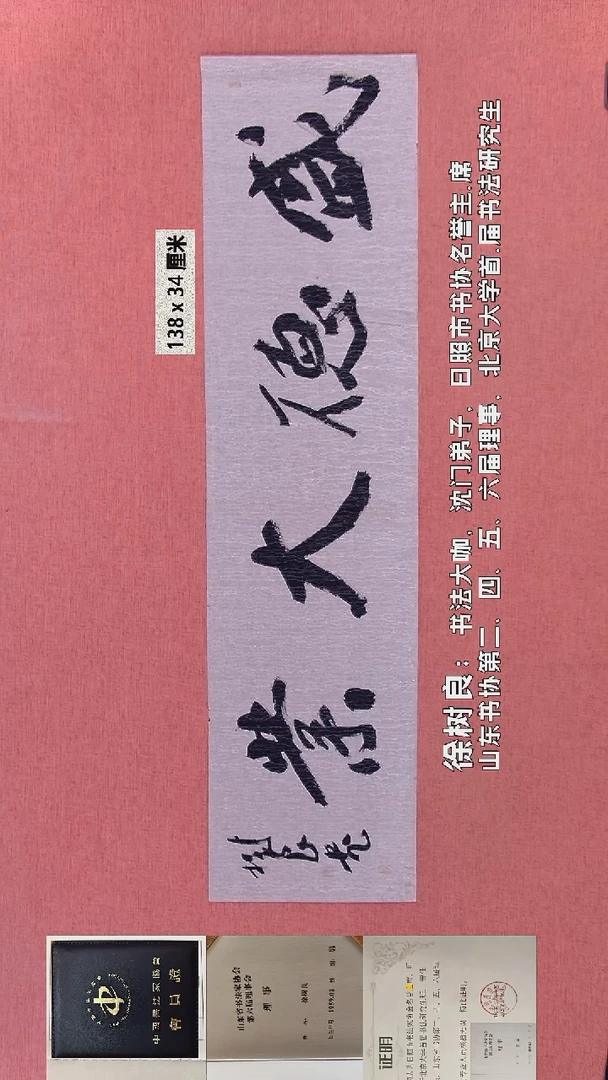 138 x 34 厘米
盛德大業
树良书
徐树良：书法大咖，沈门弟子，日照市书协名誉主.席
山东书协第三、四、五、六届理事，北京大学首.届书法研究生
中國書法家協會
會員證
山东省书法家协会
第六届理事会
理 事
徐树良
证明